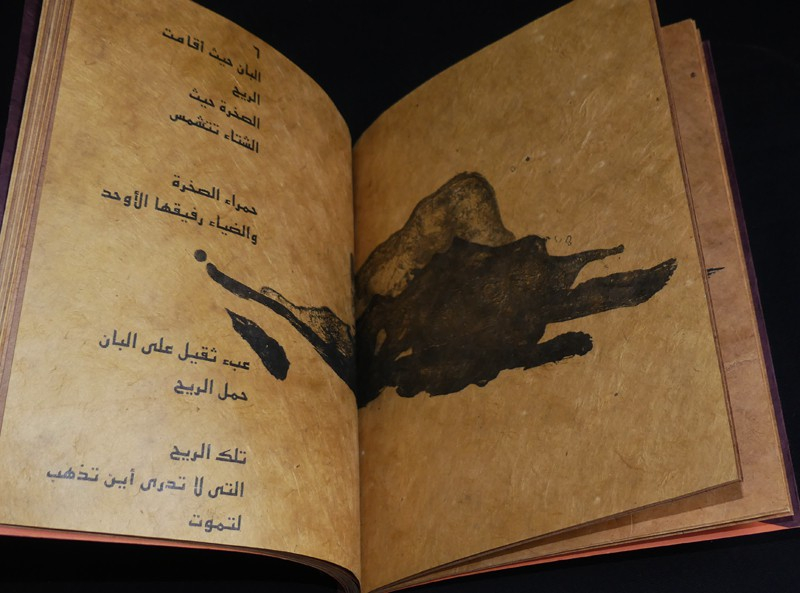 ٦
البان حيث أقامت
الريح
الصخرة حيث
الشتاء تتشمس
حمراء الصخرة
والضياء رفيقها الأوحد
عبء ثقيل على البان
حمل الريح
تلك الريح
التى لا تدرى أين تذهب
لتموت